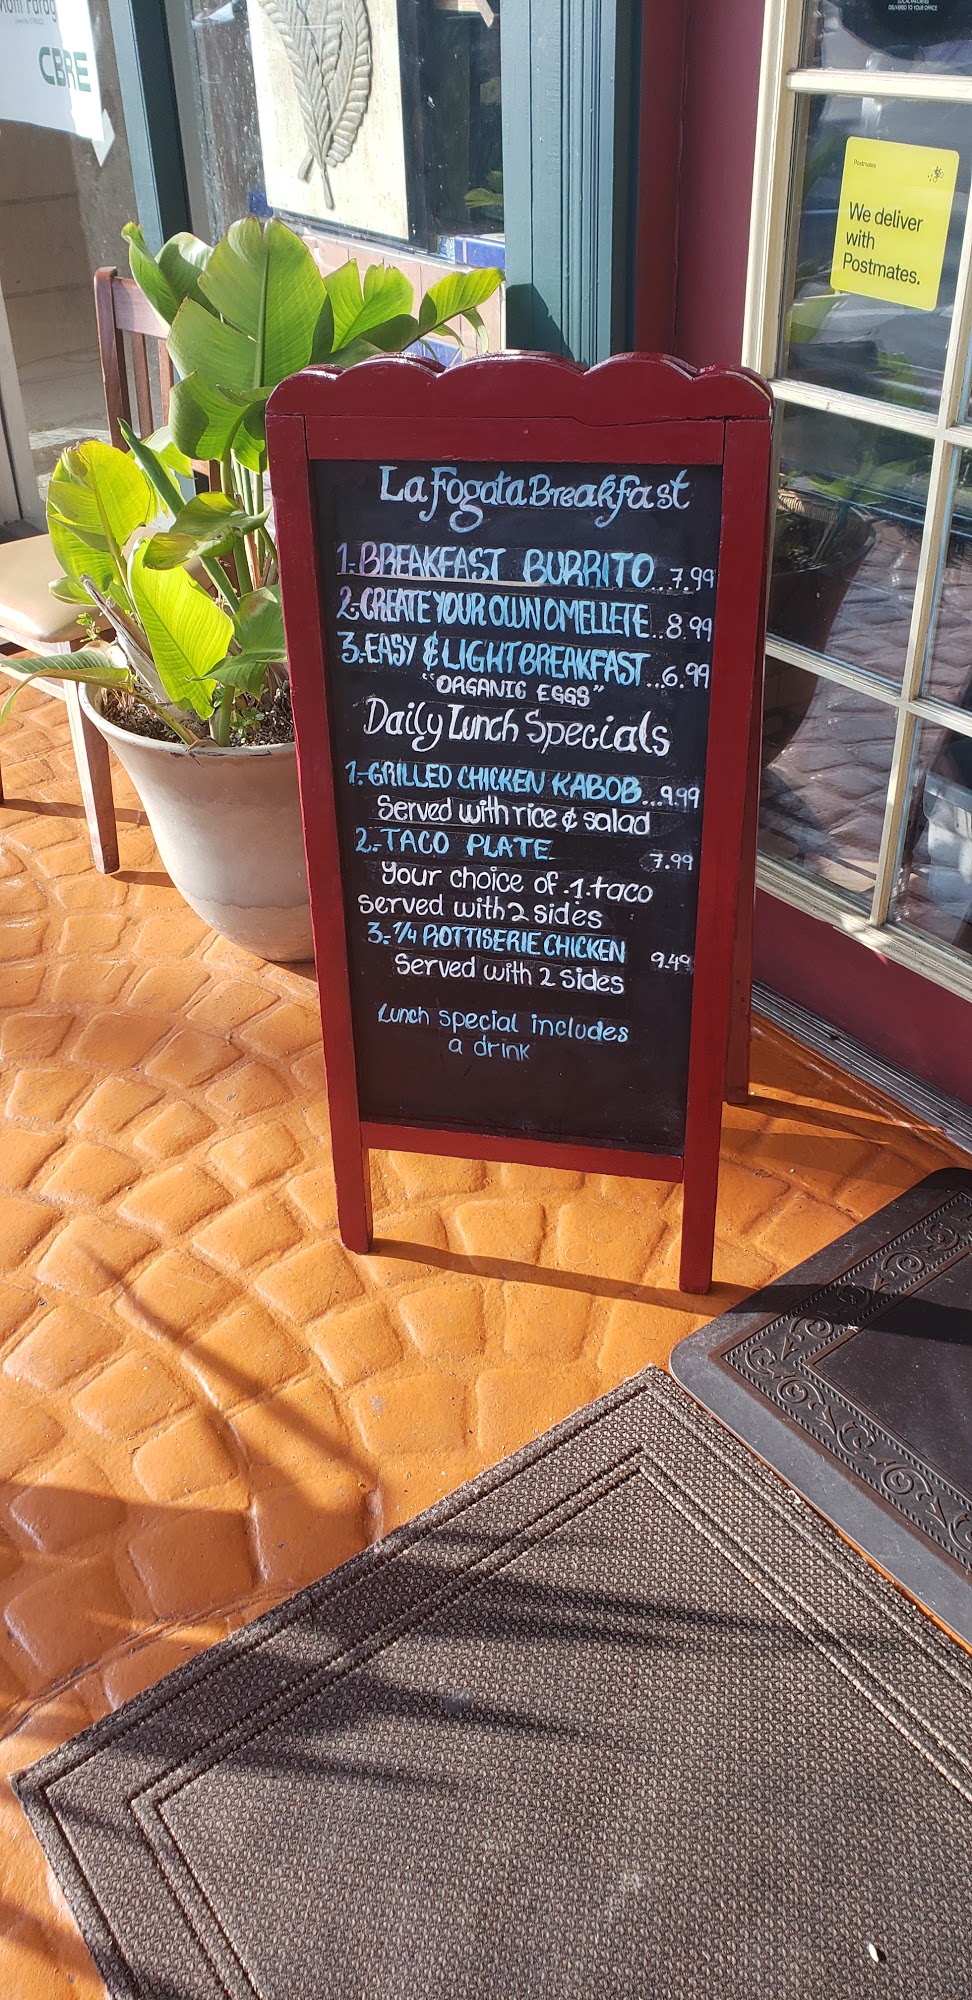 CBRE
LOCAL FAVORITES
DELIVERED TO YOUR OFFICE
Postmates
We deliver
with
Postmates.
La Fogata Breakfast
1.-BREAKFAST BURRITO...7.99
2.-CREATE YOUR OWN OMELLETE..8.99
3.-EASY & LIGHT BREAKFAST..6.99
"ORGANIC EGGS"
Daily Lunch Specials
1.-GRILLED CHICKEN KABOB...9.99
Served with rice & salad
2.-TACO PLATE 7.99
Your choice of .1. taco
served with 2 sides
3.-1/4 ROTTISERIE CHICKEN 9.49
Served with 2 sides
Lunch special includes
a drink